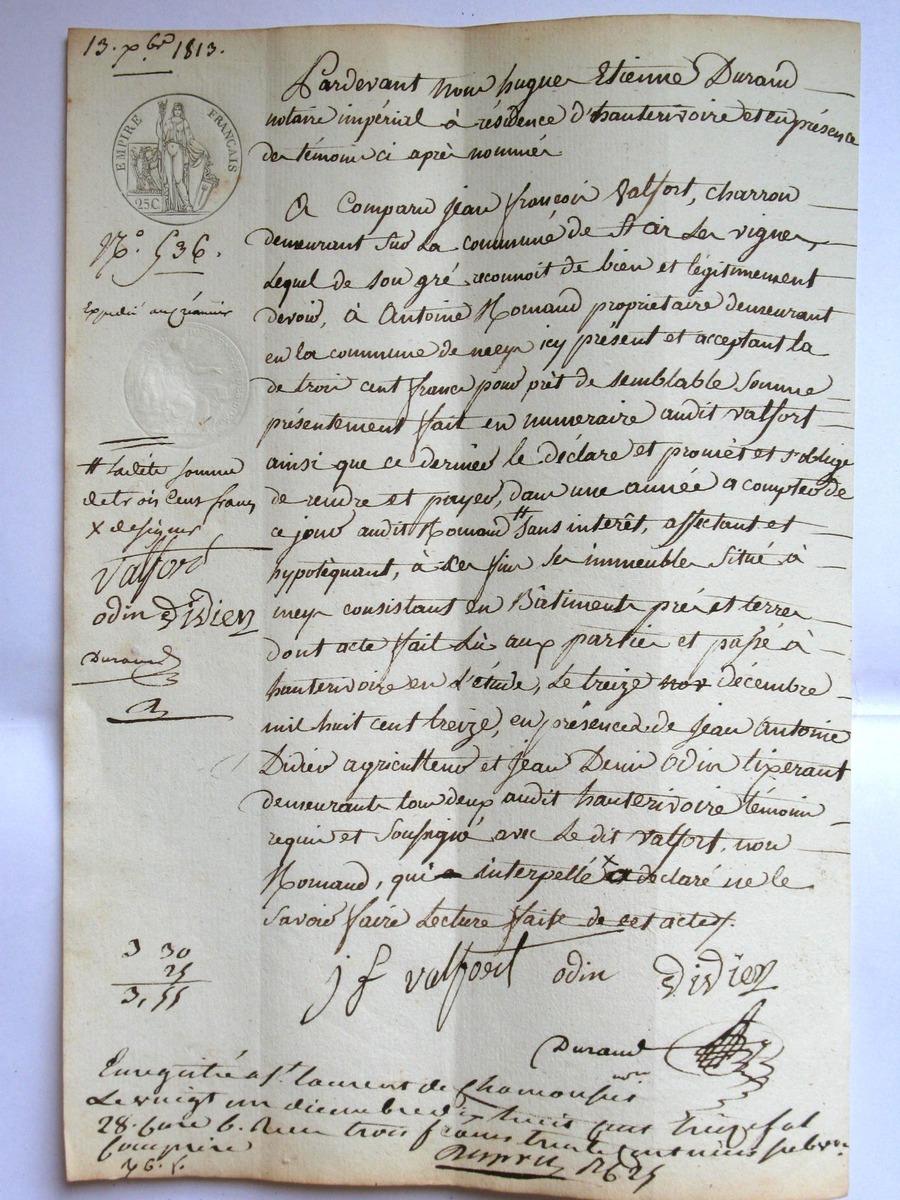 13. xbre 1813.
EMPIRE FRANÇAIS
25C
N.° 536.
Expédié au créancier
Pardevant nous hugues Etienne Durand
notaire impérial à résidence d'hauterivoire et en présence
des témoins ci après nommés.
A Comparu Jean françois Valfort, charron
demeurant sur la commune de St Cir Les vignes,
Lequel de son gré reconnoit de bien et légitimement
devoir, à Antoine Romand propriétaire demeurant
en la commune de neys icy présent et acceptant la
de trois cent francs pour prêt de semblable somme
présentement fait en numeraire audit valfort
ainsi que ce dernier le déclare et promèt et s'oblige
de rendre et payer, dans une année a compter de
ce jour audit Romand # sans interêt, affectant et
hypotèquant, à ces fins ses immeubles situé à
meys consistants en Bâtiments prés et terres
dont acte fait lù aux parties et passé à
hauterivoire en l'étude, Le treize nov décembre
mil huit cent treize, en présence de Jean Antoine
Didier agriculteur et Jean Denis Odin tixerant
demeurants tous deux audit hauterivoire témoins
requis et soussigné avec Le dit valfort, non
Romand, qui interpellé x a déclaré ne le
savoir faire Lecture faite de cet acte.
# Ladite somme
de trois cent francs
x de signer
Valfort
odin Didier
Durand
j f valfort odin Didier
Durand
3 30
25
3,55
Enregistré a St Laurent de Chamousset
Le vingt un décembre dix huit cent treize fol
28. Case 6. Reçu trois francs trente centimes subvon
Comprise